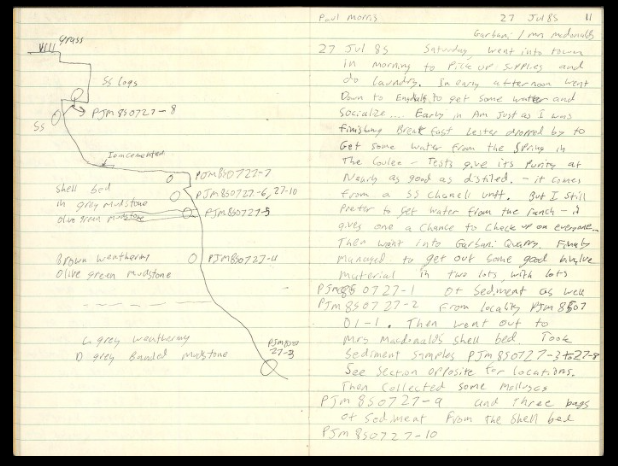 Grass
SS logs
PJM850727-8
SS
Ironcemented
PJM850727-7
shell bed
in grey mudstone
olive green mudstone
PJM850727-6, 27-10
PJM850727-5
Brown weathering
Olive green mudstone
PJM850727-4
L grey weathering
D grey Banded mudstone
PJM850
727-3
Paul Morris 27 Jul 85 11
Garbani / Mrs Macdonalds
27 Jul 85 Saturday went into town
in morning to Pick up supplies and
do laundry. In early afternoon went
Down to Engdahls to get some water and
Socialize.... Early in Am Just as I was
finishing Break fast Lester dropped by to
Get some water from the Spring in
The Coulee - Tests give its Purity at
Nearly as good as distiled. - it comes
from a SS Channel unit. But I still
Prefer to get water from the ranch - it
gives one a Chance to Check up on everyone.
Then went into Garbani Quarry. Finally
Managed to get out some good bivalve
Material in two lots with lots
PJM850727-1 of Sediment as well
PJM850727-2 From locality PJM8507
01-1. Then went out to
Mrs Macdonalds shell bed. Took
Sediment samples PJM850727-3 to 27-8
See Section opposite for locations.
Then Collected some Molluscs
PJM850727-9 and Three bags
of Sediment From the Shell bed
PJM850727-10